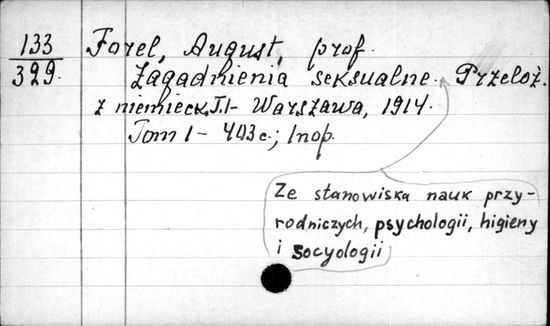 133
399.
Forel, August, prof.
Zagadnienia seksualne. Przełoż.
z niemieck. T.I- Warszawa, 1914.
Tom I - 403 c.; Inop.
Ze stanowiska nauk przy-
rodniczych, psychologii, higieny
i socyologii